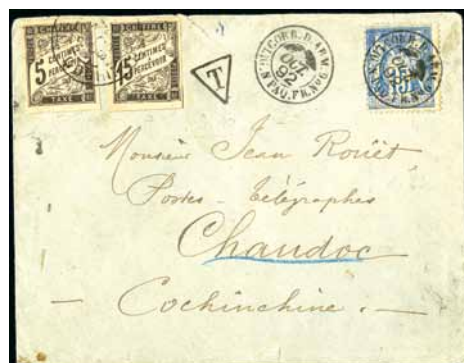 5 CENTIMES À PERCEVOIR TAXE
15 CENTIMES À PERCEVOIR TAXE
T
CORR. D. ARM.
OCT.
92
PAQ. FR. No 6
15
Monsieur Jean Rouët,
Postes - Télégraphes
Chaudoc
— Cochinchine. —